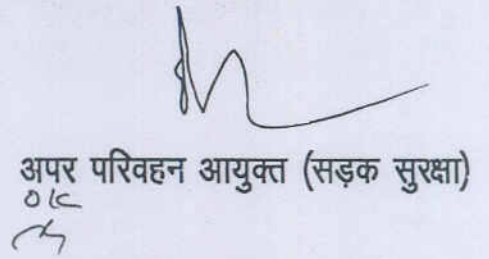 अपर परिवहन आयुक्त (सड़क सुरक्षा)